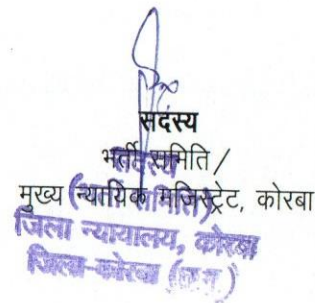 सदस्य
भर्ती समिति /
मुख्य न्यायिक मजिस्ट्रेट, कोरबा
जिला न्यायालय, कोरबा
जिला-कोरबा (छ.ग.)